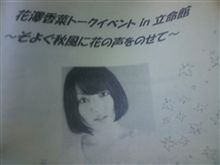 花澤香菜トークイベント in 立命館
～そよぐ秋風に花の声をのせて～